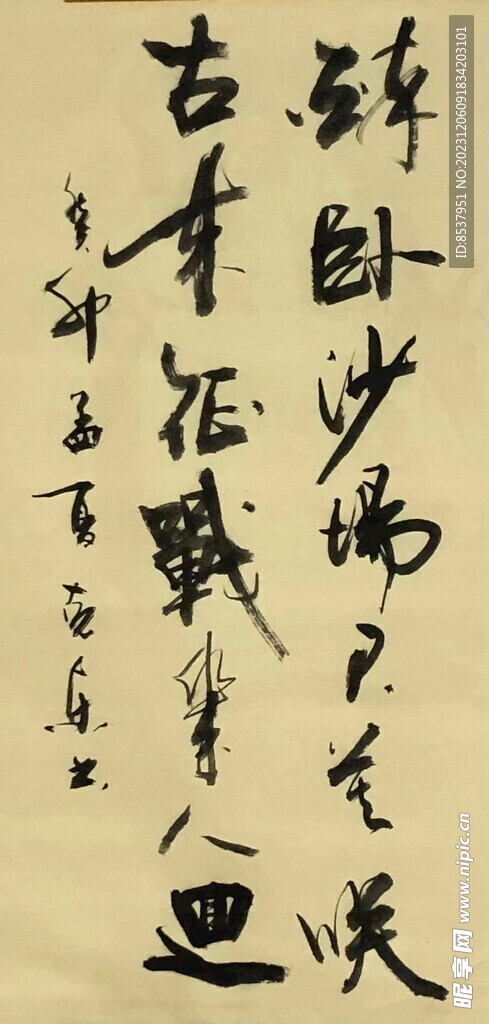 醉卧沙场君莫咲
古来征战几人回
癸卯孟夏克东书
ID:8537951 NO:20231206091834203101
昵享网 www.nipic.cn